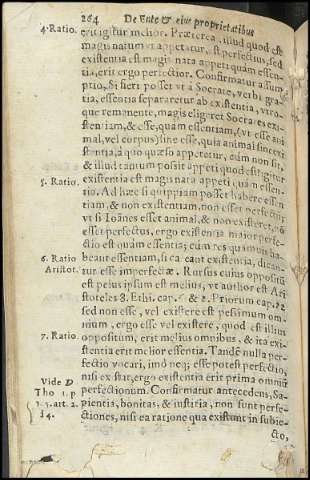 264 De Ente & eius proprietatibus
4. Ratio. erit igitur melior. Præterea, illud quod est
magis natum vt appetatur, est perfectius, sed
existentia est magis nata appeti quàm essen-
tia, erit ergo perfectior. Confirmatur assum
ptio, Si fieri posset vt à Socrate, verbi gra-
tia, essentia separaretur ab existentia, vtro-
que remanente, magis eligeret Socrates exi-
stentiam, & esse, quàm essentiam, (vt esse ani
mal, vel corpus) sine esse, quia animal sine exi
stentia, à quo quæso appetetur, cùm non sit,
& illud tantum possit appeti quod est igitur
5. Ratio. existentia est magis nata appeti quàm essen-
tia. Ad hæc si quippiam posset habere essen
tiam, & non existentiam, non esset perfectum
vt si Ioânes esset animal, & non existeret, nō
esset perfectus, ergo existentia maior perfe-
ctio est quàm essentia; cùm res quamuis ha-
6. Ratio beant essentiam, si ea cant existentia, dican-
Aristot. tur esse imperfectæ. Rursus cuius oppositū
est peius ipsum est melius, vt author est Ari
stoteles 8. Ethi. cap. & 2. Priorum cap.
sed non esse, vel existere est pessimum om-
nium, ergo esse vel existere, quod est illius
7. Ratio. oppositum, erit melius omnibus, & ita exi-
stentia erit melior essentia. Tandē nulla per-
fectio vocari, imò neq; esse potest perfectio,
nisi existat, ergo existentia erit prima omniū
Vide D perfectionum. Confirmatur antecedens, Sa-
Tho 1. p pientia, bonitas, & iustitia, non sunt perfe-
art. 2. ctiones, nisi ea ratione qua existunt in subie-
14.
cto,